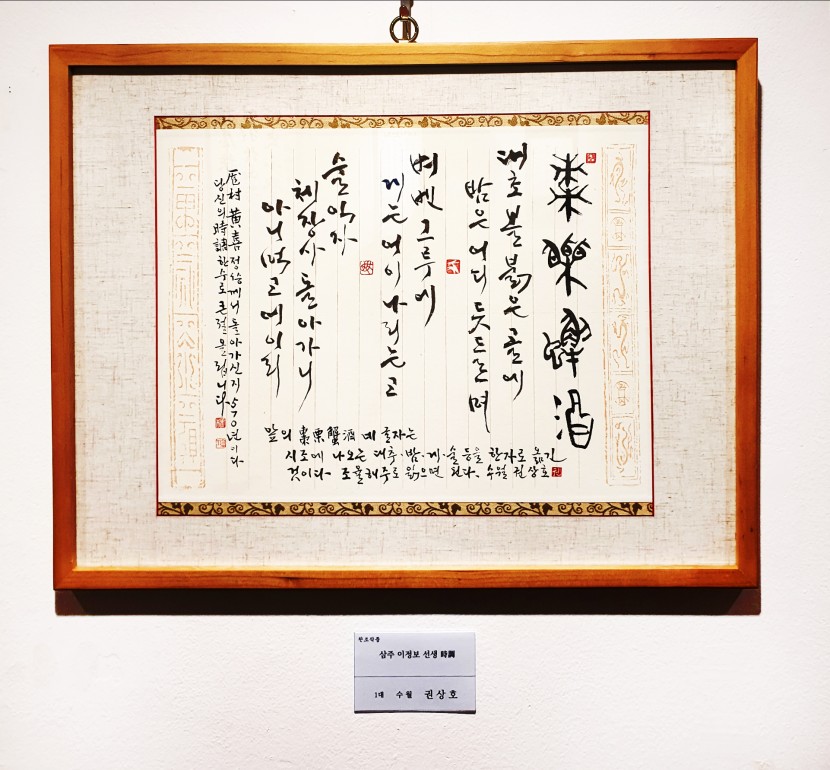 棗栗蟹酒
대초 볼 붉은 골에
밤은 어디 듯드르며
벼벤 그루에
게는 어이 나리는고
술 익자
체장사 돌아가니
아니 먹고 어이리
앞의 棗栗蟹酒 네 글자는
시조에 나오는 대추·밤·게·술 등을 한자로 옮긴
것이다. 조율해주로 읽으면 된다. 수월 권상호
厖村 黃喜 정승께서 돌아가신지 570년이다
당신의 時調 한수로 큰절 올립니다.
삼주 이정보 선생 時調
1대 수월 권상호